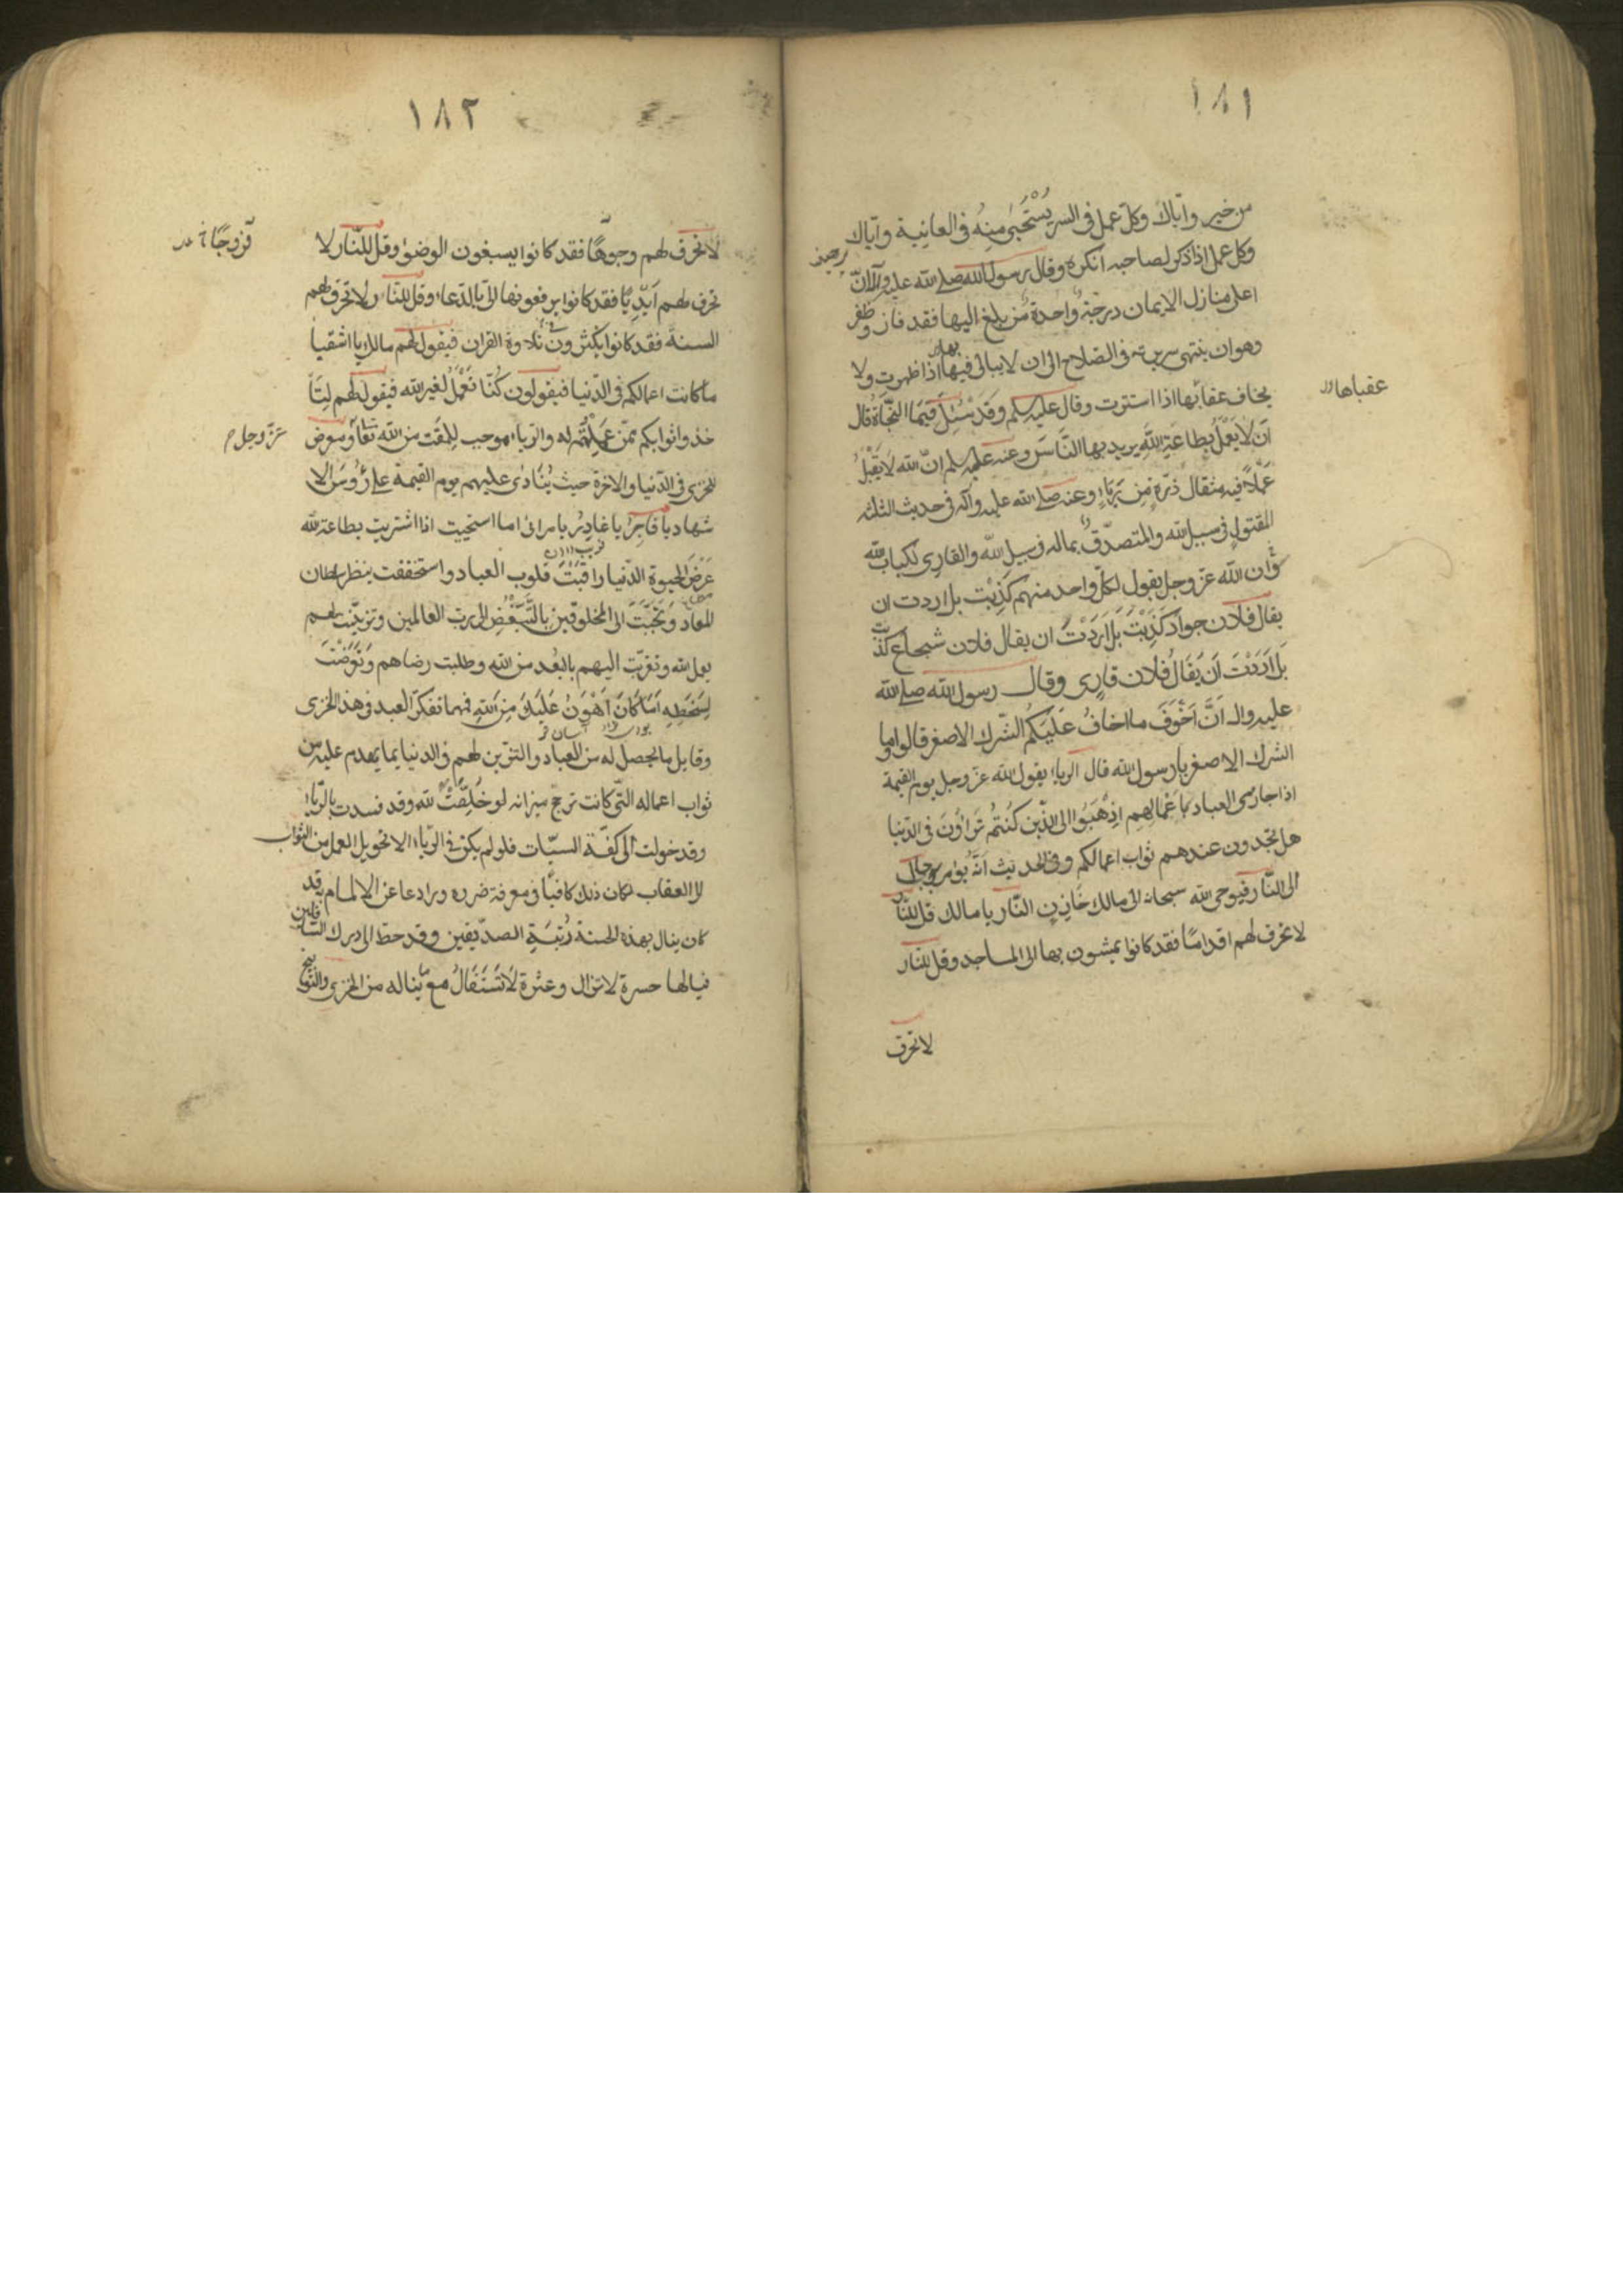 ١٨١
من خير واياك وكل عمل فى السر يُسْتَحْيىٰ مِنِهُ فى العلانية واياك
وكل عمل اذا ذكر لصاحبه انكره وقال رسول الله صلى الله عليه وآله انّ
اعلى منازل الايمان درجة واحدة من بلغ اليها فقد فاز وظفر
وهو ان ينتهى سريرته فى الصلاح الى ان لا يبالى بها اذا ظهرت ولا
يخاف عقابها اذا استترت وقال عليه السلم وقد سُئِلَ فيما النجاة قال
عقباها
اَن لا يَعْمَلُ بِطاعَةِ اللهِ يريد بها النَّاسَ وعنه عليه السلم انّ الله لا يَقْبَلُ
عَمَلاً فيه مثقال ذرّةٍ مِن رِيَاءٍ وعنه صلى الله عليه وآله فى حديث الثلثه
المقتول فى سبيل الله والمتصدّق بماله فى سبيل الله والقارى لكتاب الله
وان الله عزّ وجل يقول لكلّ واحد منهم كَذِبْت بل اردت ان
يقال فلان جواد كَذِبْتَ بَل اَرَدْتَ ان يقال فلان شجاع كذبت
بَل اَرَدْتَ اَن يُقَالُ فُلان قارِى وقال رسول الله صلى الله
عليه واله اِنَّ اَخْوَفَ ما اخافُ عَلَيكُم الشرك الاصغر قالوا وما
الشرك الاصغر يا رسول الله قال الرياء يقول الله عزّ وجل يوم القيمة
اذا جازى العباد باَعْمَالِهِم اِذْهَبُوا الى الذّين كُنْتُم تَراؤُنَ فى الدّنيا
هل تجدون عندهم ثواب اعمالكم وفى الحديث انَّه يُؤمر برجال
الى النّار فيوحى الله سبحانه الى مالك خَازِنِ النّار يا مالك قل للنّار
لا تحرق لهم اقدامًا فقد كانوا يمشون بها الى المساجد وقل للنار
لا تحرق
١٨٢
لا تحرق لهم وجوهًا فقد كانوا يسبغون الوضؤ وقل للنّار لا
تحرق لهم اَيْدِيًا فقد كانوا يرفعونها الىّ بالدّعاء وقل للنّار لا تحرق لهم
السنة فقد كانوا يكثرون تلاوة القران فيقول لهم مالك يا اشقيا
ما كانت اعمالكم فى الدّنيا فيقولون كُنّا نَعْمَلُ لغير الله فيقول لهم
خذوا ثوابكم ممّن عَمِلْتُم له والرّياء موجب لِلمَقت من الله تعالى
عزّ وجل
للخزى فى الدّنيا والاخرة حيث يُنَادٰى عليهم يوم القيمة على رُؤُسِ الا
شهاد يا فاجِرُ يا غادِرُ يا مرائى اما استحييت اذا اشتريت بطاعة الله
عَرَضَ الحيوة الدّنيا راقَبْتَ قلوب العباد واستخففت بنظر سلطان
المعاد وَتَحَبَّبْتَ الى المخلوقين بالتَّبَغُّضِ الى رب العالمين وتزيّنت لهم
بعمل الله وتقربّت اليهم بالبُعد من الله وطلبت رضاهم وَتَعَرَّضْتَ
لِسَخَطِهِ اَمَا كَانَ اَهْوَنُ عَلَيْكَ مِن اللهِ فمهما تفكّر العبد فى هذا الخزى
وقابل ما يحصل له من العباد والتزّين لهم فى الدنيا بما يهدم عليه من
ثواب اعماله التّى كانت ترجّح ميزانه لو خَلَصَتْ لله وقد فسدت بالرّياء
وقد حولت الى كفّة السيّات فلو لم يكن فى الرّياء الا تحويل العمل من الثواب
الى العقاب لكان ذلك كافيًا فى معرفة ضرره ورادعا عن الالمام به فقد
كان ينال بهذه الحسنة رُتْبَةِ الصدّيقين وقد حط الى درك السّافلين
فيالها حسرة لا تزال وعثرة لا تُسْتَقَالُ مع ما يناله من الخزى والتوبيخ